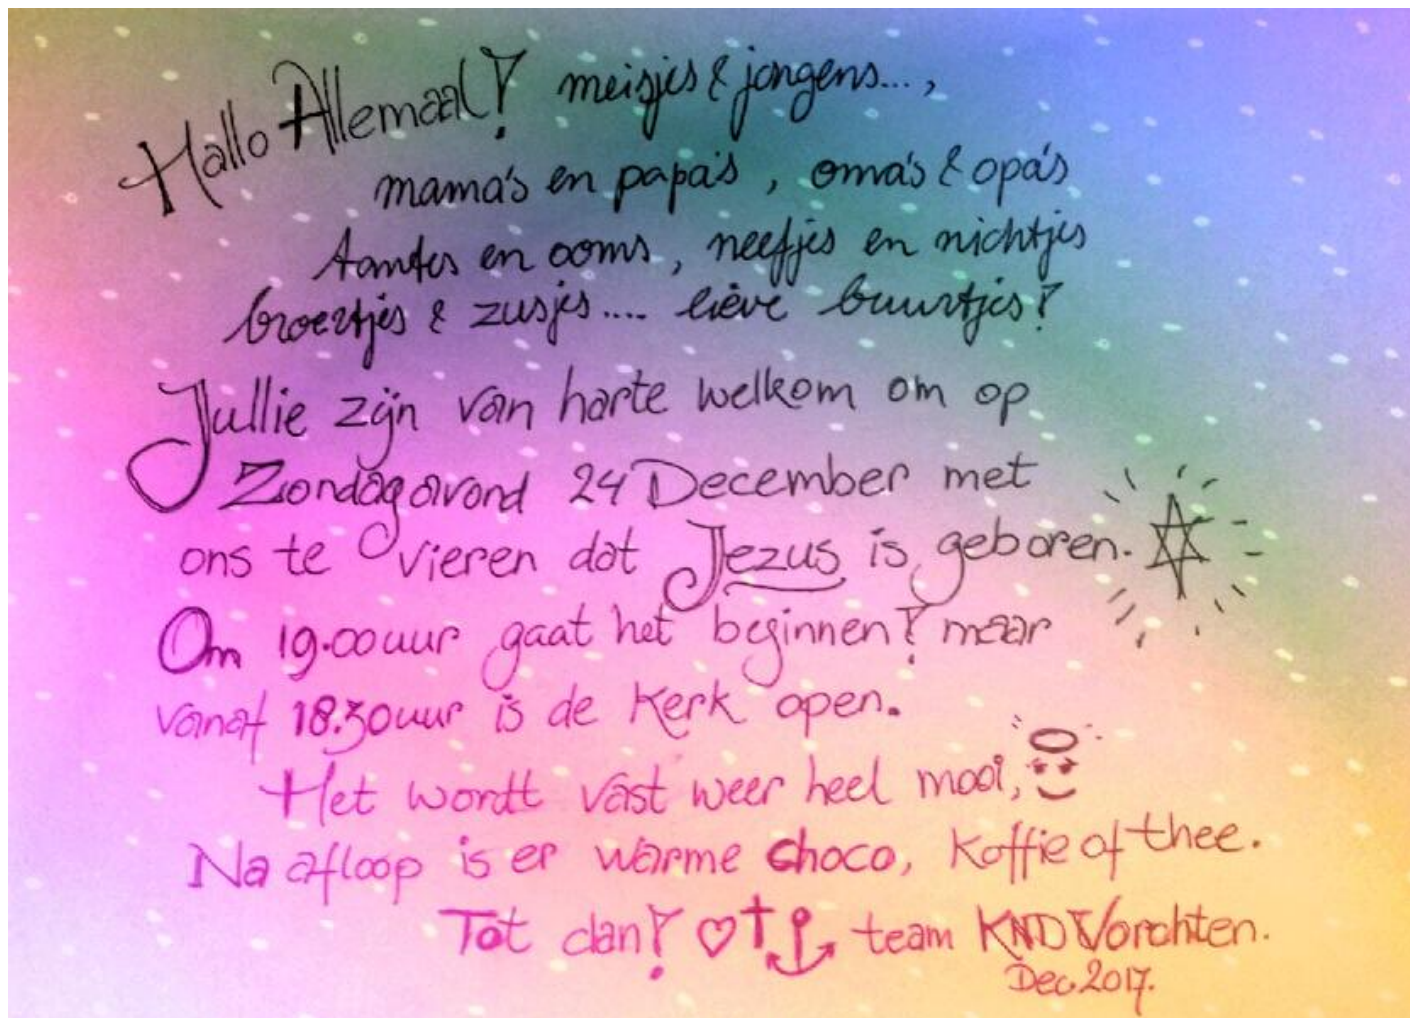 Hallo Allemaal! meisjes & jongens...,
mama's en papa's, oma's & opa's
tantes en ooms, neefjes en nichtjes
broertjes & zusjes.... lieve buurtjes!
Jullie zijn van harte welkom om op
Zondagavond 24 December met
ons te vieren dat Jezus is geboren.
Om 19.00 uur gaat het beginnen! maar
vanaf 18.30 uur is de kerk open.
Het wordt vast weer heel mooi,
Na afloop is er warme choco, koffie of thee.
Tot dan! team KND Vorchten.
Dec. 2017.